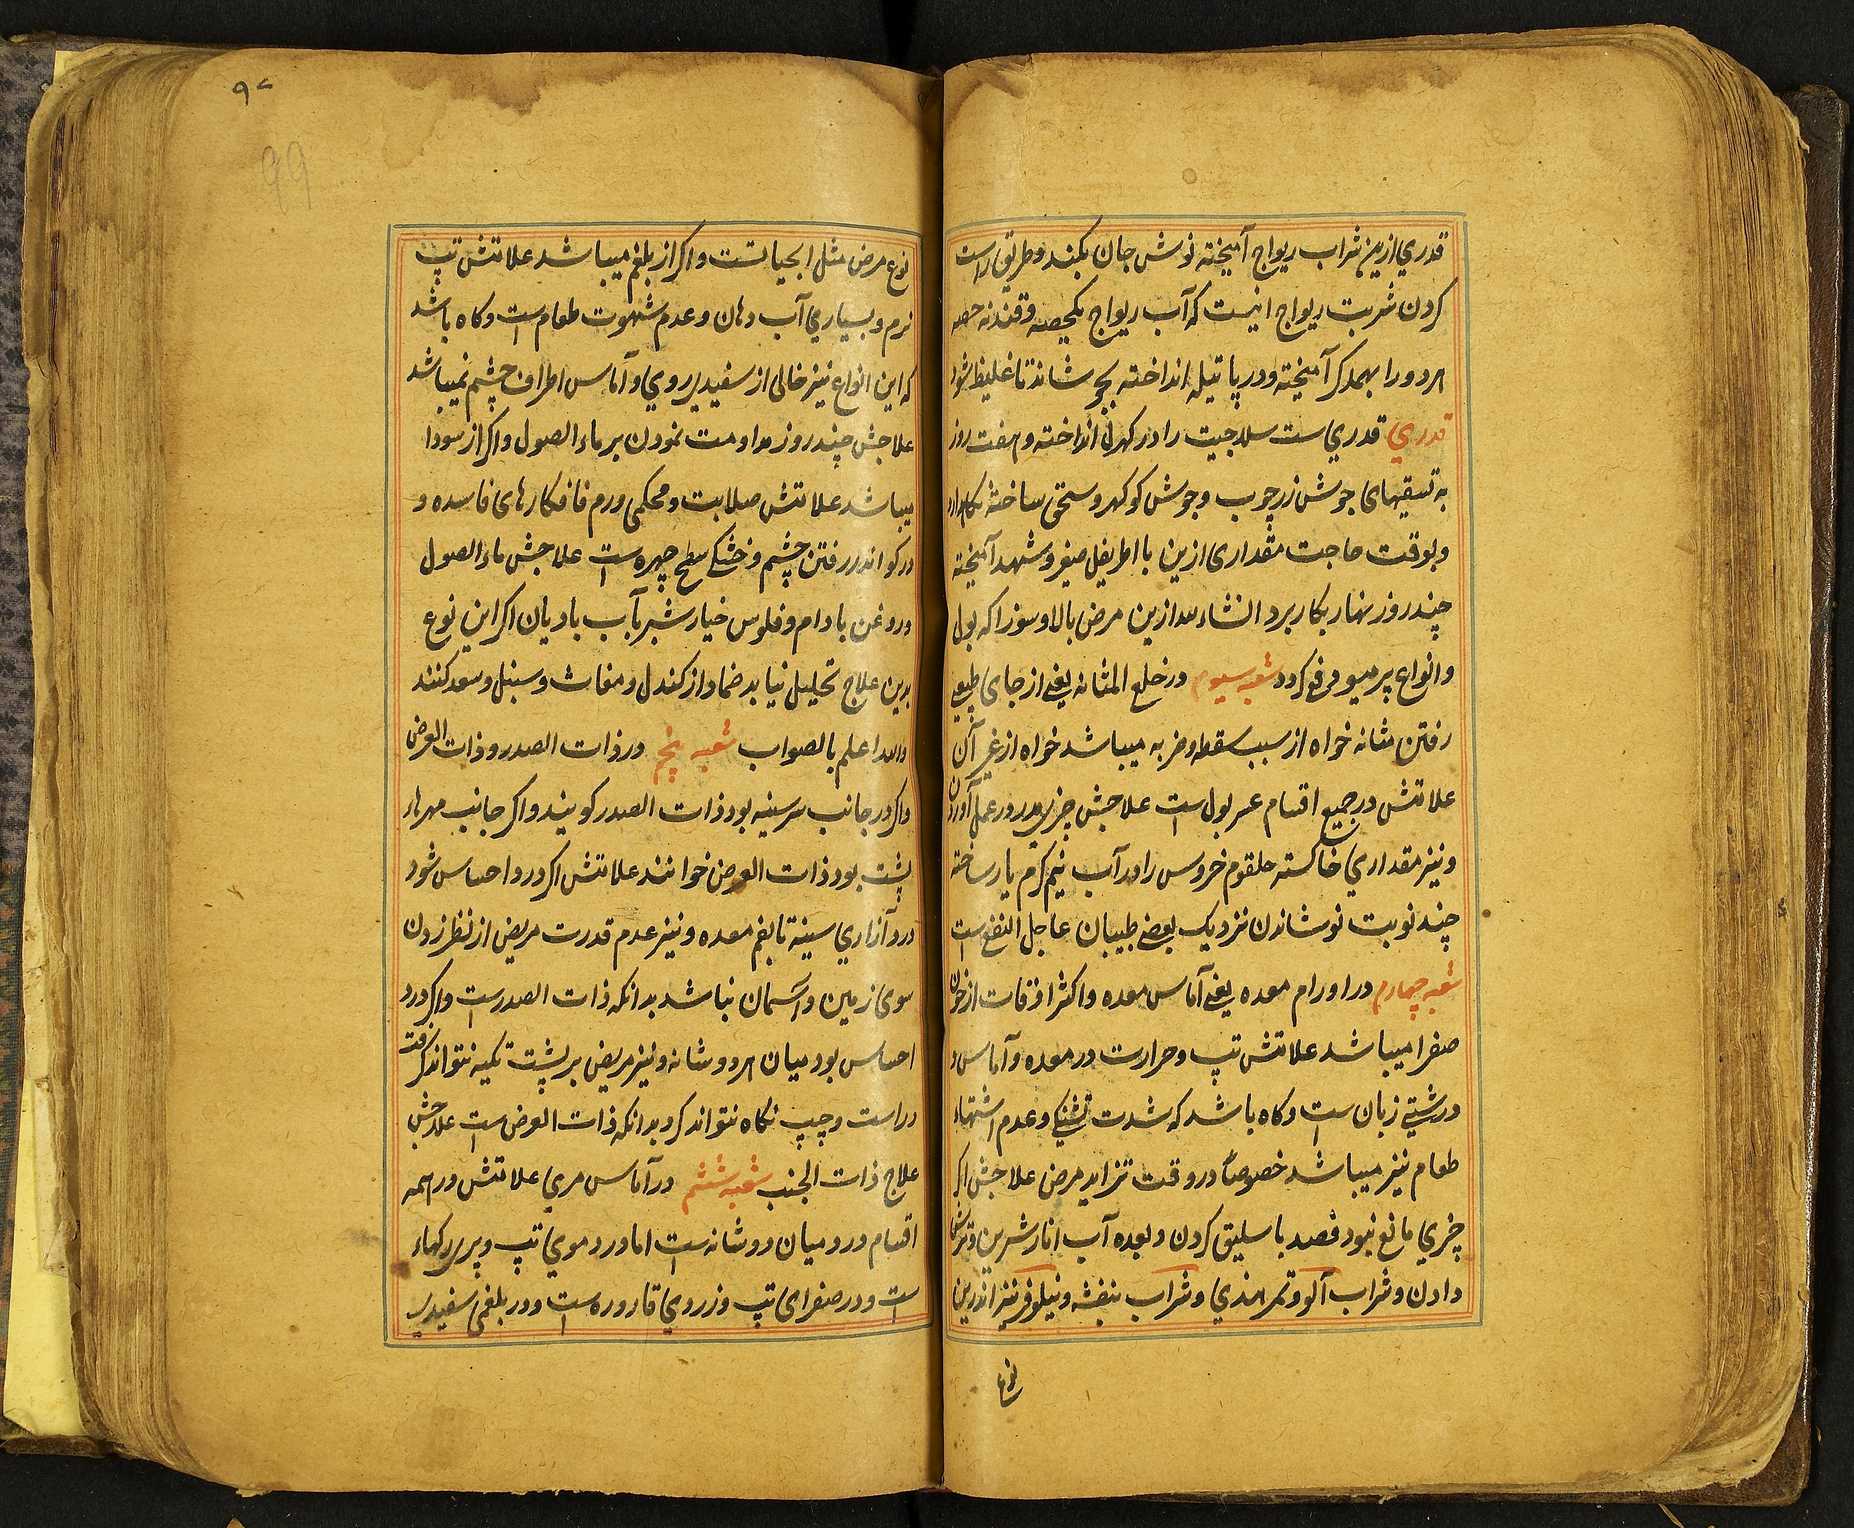 قدري ازين شراب ريواج آميخته نوش جان بكند وطريق راست
كردن شربت ريواج اينست كه آب ريواج يكحصه وقند نه حصه
هر دو را بهمدكر آميخته و در پاتيله انداخته بجوشاند تا غليظ شود
قدري قدري ست سلاجيت را در كهرل انداخته و هفت روز
به تسقيهاى جوش زرچوب وجوش كوكهرو ساخته نكاهدارد
و بوقت حاجت مقدارى ازين با اطريفل صغير و شهد آميخته
چند روز نهار بكار برد انشاء الله ازين مرض بالا و سوزاكه بول
وانواع پرميو دفع كردد شعبه سيوم در خلع المثانه يعنى از جاى طبيعى
رفتن مثانه خواه از سبب سقطه وضربه ميباشد خواه از غير آن
علامتش در جميع اقسام عسر بول ست علاجش چيز مدر در عمل آوردن
و نيز مقداري خاكسته حلقوم خروس را در آب نيم كرم يار ساخته
چند نوبت نوشاندن نزديك بعضى طبيبان عاجل النفع است
شعبه چهارم در اورام معده يعنى آماس معده و اكثر اوقات از خون
صفرا ميباشد علامتش تپ وحرارت در معده و آماس و
درشتي زبان ست و كاه باشد كه شدت تشنكي و عدم اشتهاء
طعام نيز ميباشد خصوصاً در وقت تزايد مرض علاجش اكر
چيزي مانع نبود فصد باسليق كردن و بعده آب انار شيرين وترش
دادن و شراب آلو و تمر هندي و شراب بنفشه و نيلوفر نيز اندرين
نوع
٩٨
99
نوع مرض مثل ابحياتست و اكر از بلغم ميباشد علامتش تپ
نرم و بسياري آب دهان و عدم شهوت طعام است و كاه باشد
كه اين انواع نيز خالى از سفيدي روي و آماس اطراف چشم نميباشد
علاجش چند روز مداومت نمودن بر ماء الصول و اكر از سودا
ميباشد علامتش صلابت و محكمى ورم فافكارهاى فاسده و
در كو اندر رفتن چشم و خشكى سطح چهره ست علاجش ماء الصول
و روغن بادام و فلوس خيار شنبر بآب باديان اكر اين نوع
بدين علاج تحليل نيابد ضماد از كندل و مغاث و سنبل و سعد كنند
والله اعلم بالصواب شعبه پنجم در ذات الصدر و ذات العرض
و اكر در جانب سر سينه بود ذات الصدر كويند و اكر جانب مهرهاء
پشت بود ذات العرض خوانند علامتش اكر درد احساس شود
درد آزاري سينه تا بفم معده و نيز عدم قدرت مريض از نظر زدن
سوى زمين و آسمان نباشد بدانكه ذات الصدر ست و اكر درد
احساس بود ميان هر دو شانه و نيز مريض بر پشت تكيه نتواند كرفت
و راست و چپ نكاه نتواند كرد بدانكه ذات العرض ست علاجش
علاج ذات الجنب شعبه ششم در آماس مري علامتش در همه
اقسام درد ميان دو شانه ست اما در دموي تپ و پرى ركهاء
ست و در صفراى تپ و زردي قاروره ست و در بلغمى سفيدي